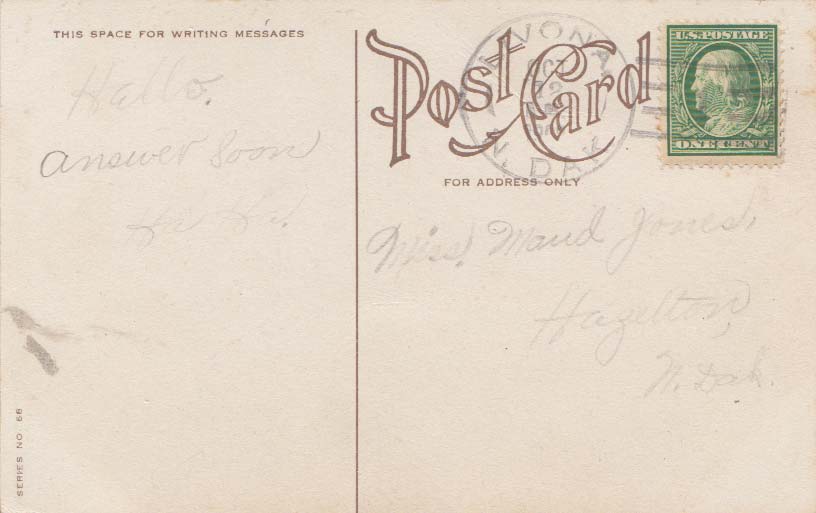 THIS SPACE FOR WRITING MESSAGES
Hello.
answer soon
Post Card
WINONA
OCT
12
N. DAK
U.S. POSTAGE
ONE CENT
FOR ADDRESS ONLY
Miss. Maud Jones.
Hazelton,
N. Dak.
SERIES NO 68